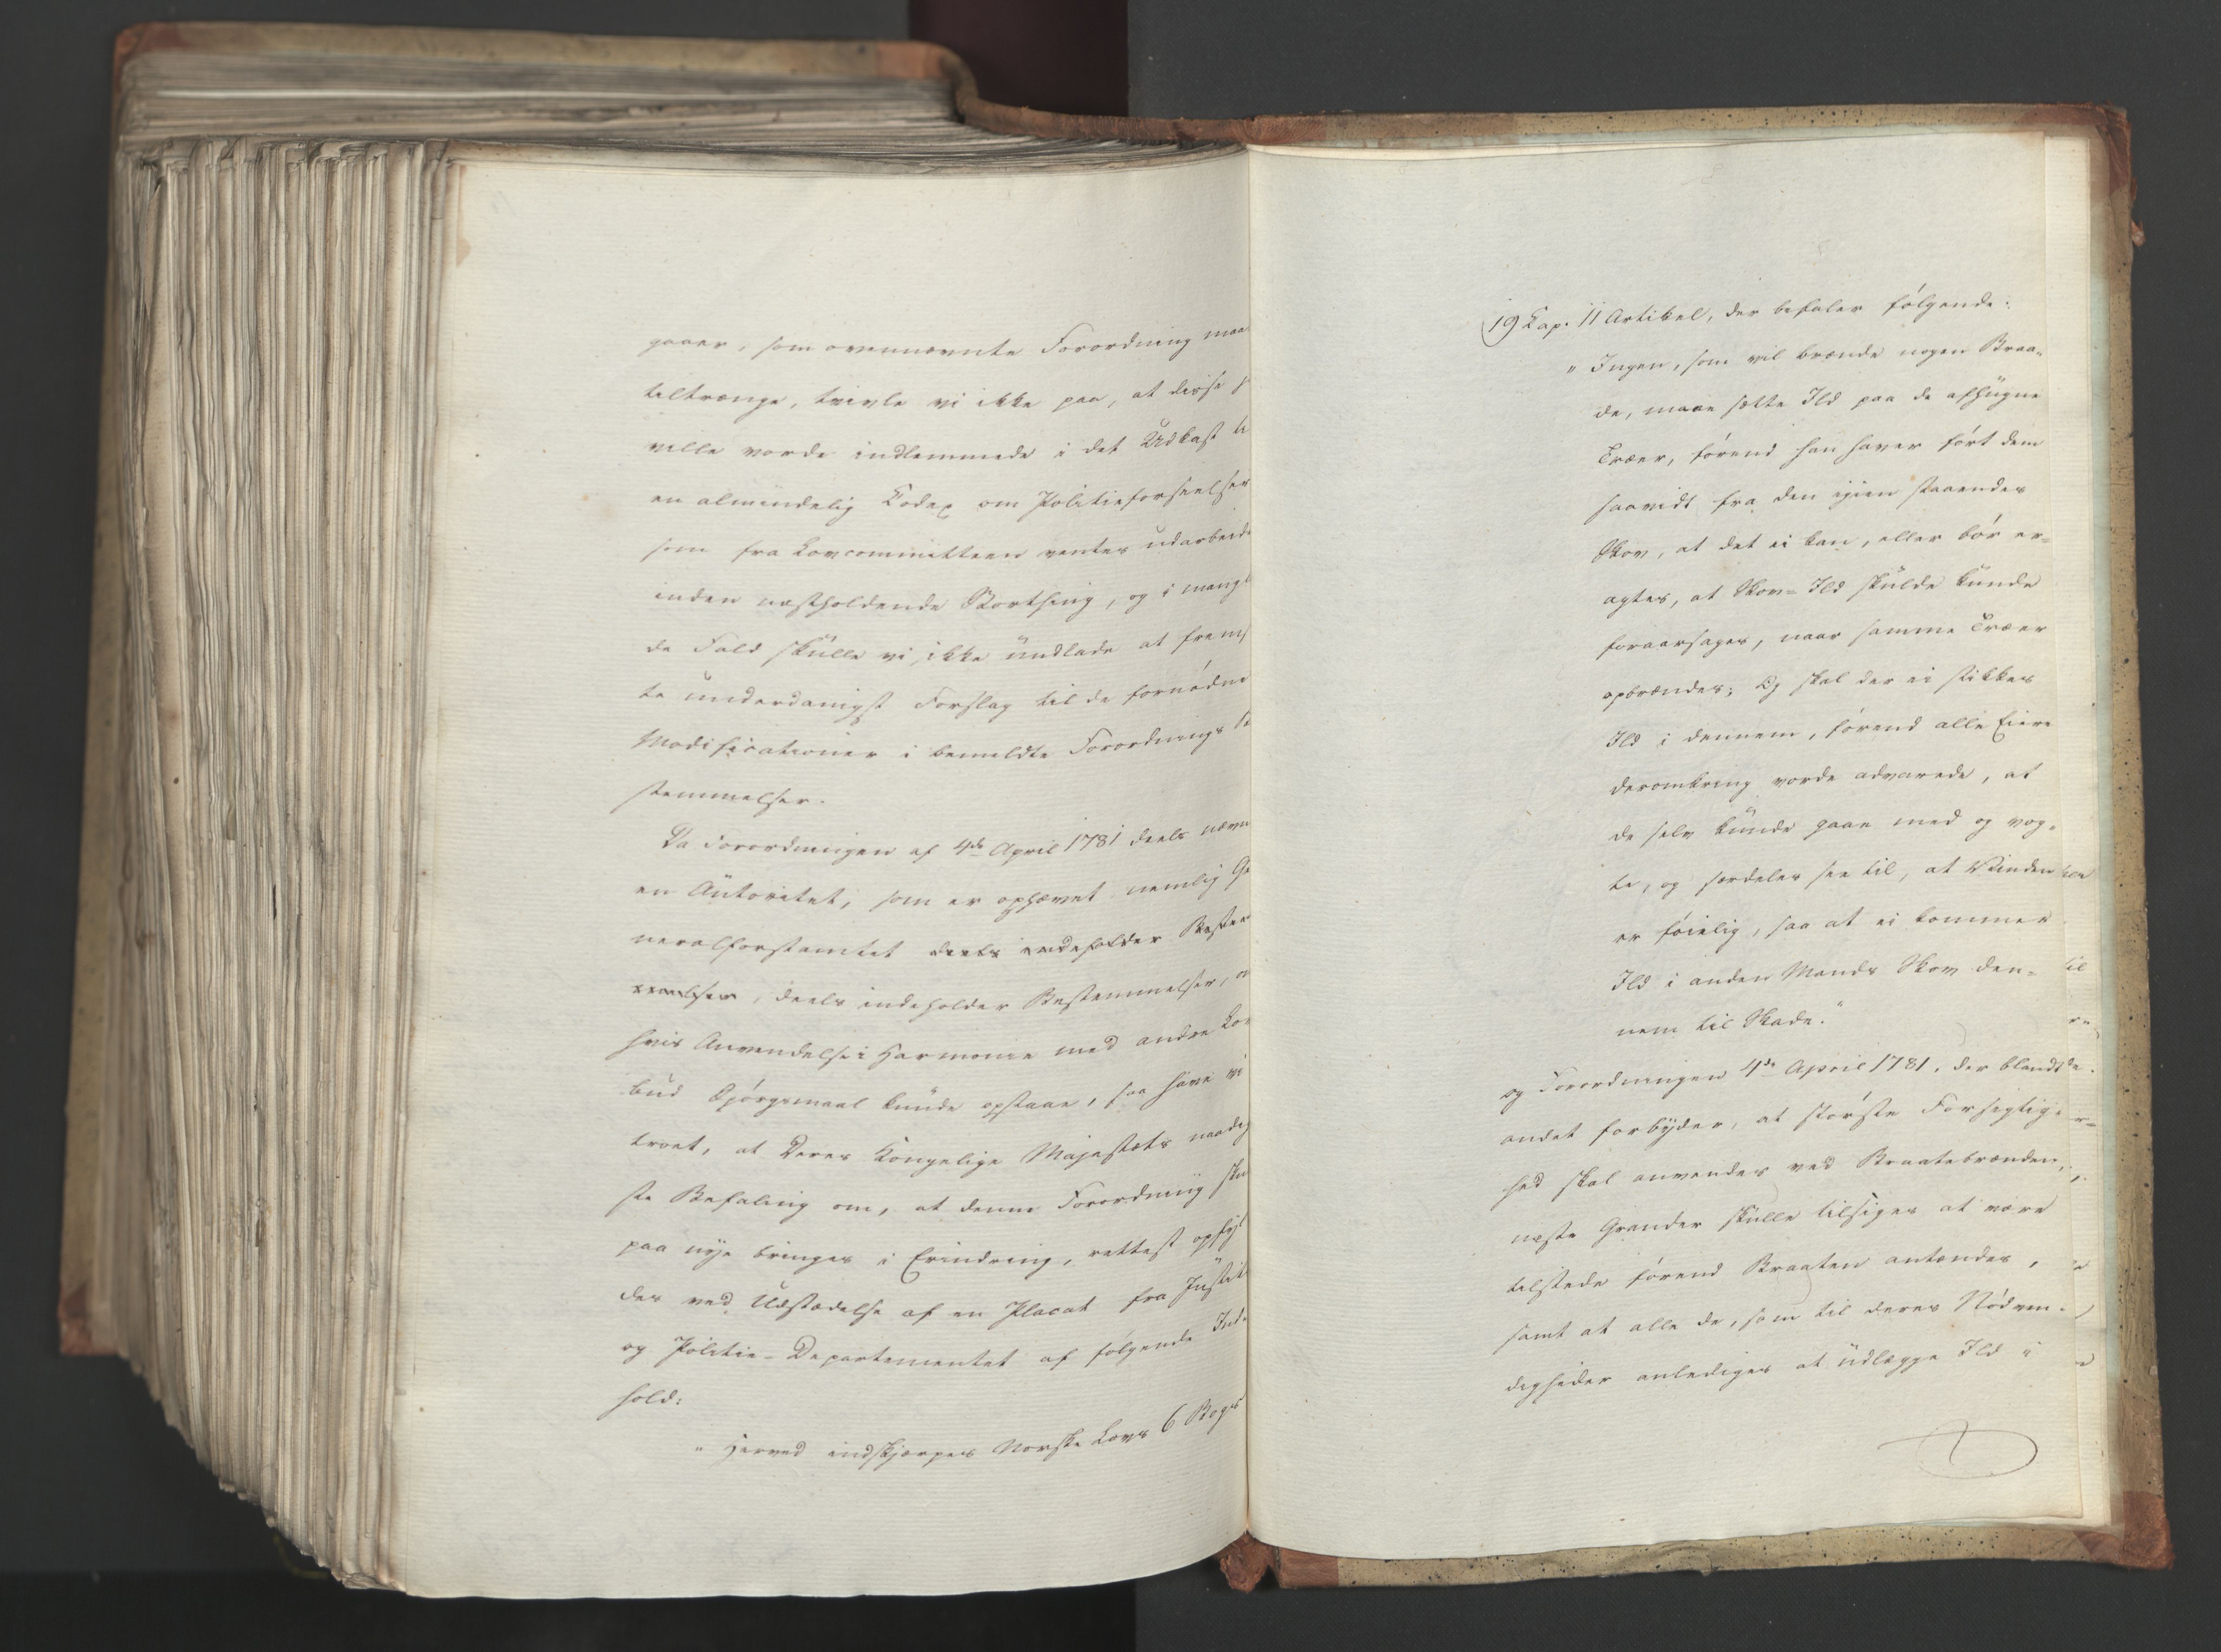 gaaer, som ovennævnte Forordning maa
tiltrænge, tvivle vi ikke paa, at disse
ville vorde indlemmede i det Udkast ti
en almindelig Codex om Politieforseelser
som fra Lovcommitteen ventes udarbeide
inden næstholdende Storthing, og i mangl
de Fald skulle vi ikke undlade at frems
te underdanigst Forslag til de fornødne
Modificationer i bemeldte Forordnings be
stemmelser.
Da Forordningen af 4de April 1781 deels nævn
en Autoritet, som er ophævet nemlig Ge
neralforstamtet deels indeholder Bestem
melser, deels indeholder Bestemmelser, om
hvis Anvendelse i Harmonie med andre Lov
bud Spørgsmaal kunde opstaae, saa have vi
troet, at Deres Kongelige Majestæts naadig
ste Befaling om, at denne Forordning sku
paa nye bringes i Erindring, rettest opfyl
des ved Udstædelse af en Placat fra Justits
og Politie-Departementet af følgende Inde
hold:
"Herved indskjærpes Norske Lovs 6 Bogs
19 Cap. 11 Artikel, der befaler følgende:
"Ingen, som vil brænde nogen Braa-
de, maae sætte Ild paa de afhugne
Træer, førend han haver ført dem
saavidt fra den igien staaendes
Skov, at det ei kan, eller bør er-
agtes, at Skov-Ild skulde kunde
foraarsages, naar samme Træer
opbrændes; Og skal der ei stikkes
Ild i dennem, førend alle Eiere
deromkring vorde advarede, at
de selv kunde gaae med og vog-
te, og særdeles see til, at Vinden
er føielig, saa at ei kommer
Ild i anden Mands Skov den-
nem til Skade."
og Forordningen 4de April 1781, der blandt
andet forbyder, at største Forsigtig-
hed skal anvendes ved Braatebrænden,
næste Grander skulle tilsiges at være
tilstede førend Braaten antændes,
samt at alle de, som til deres Nødven-
digheder anlediges at udlægge Ild i